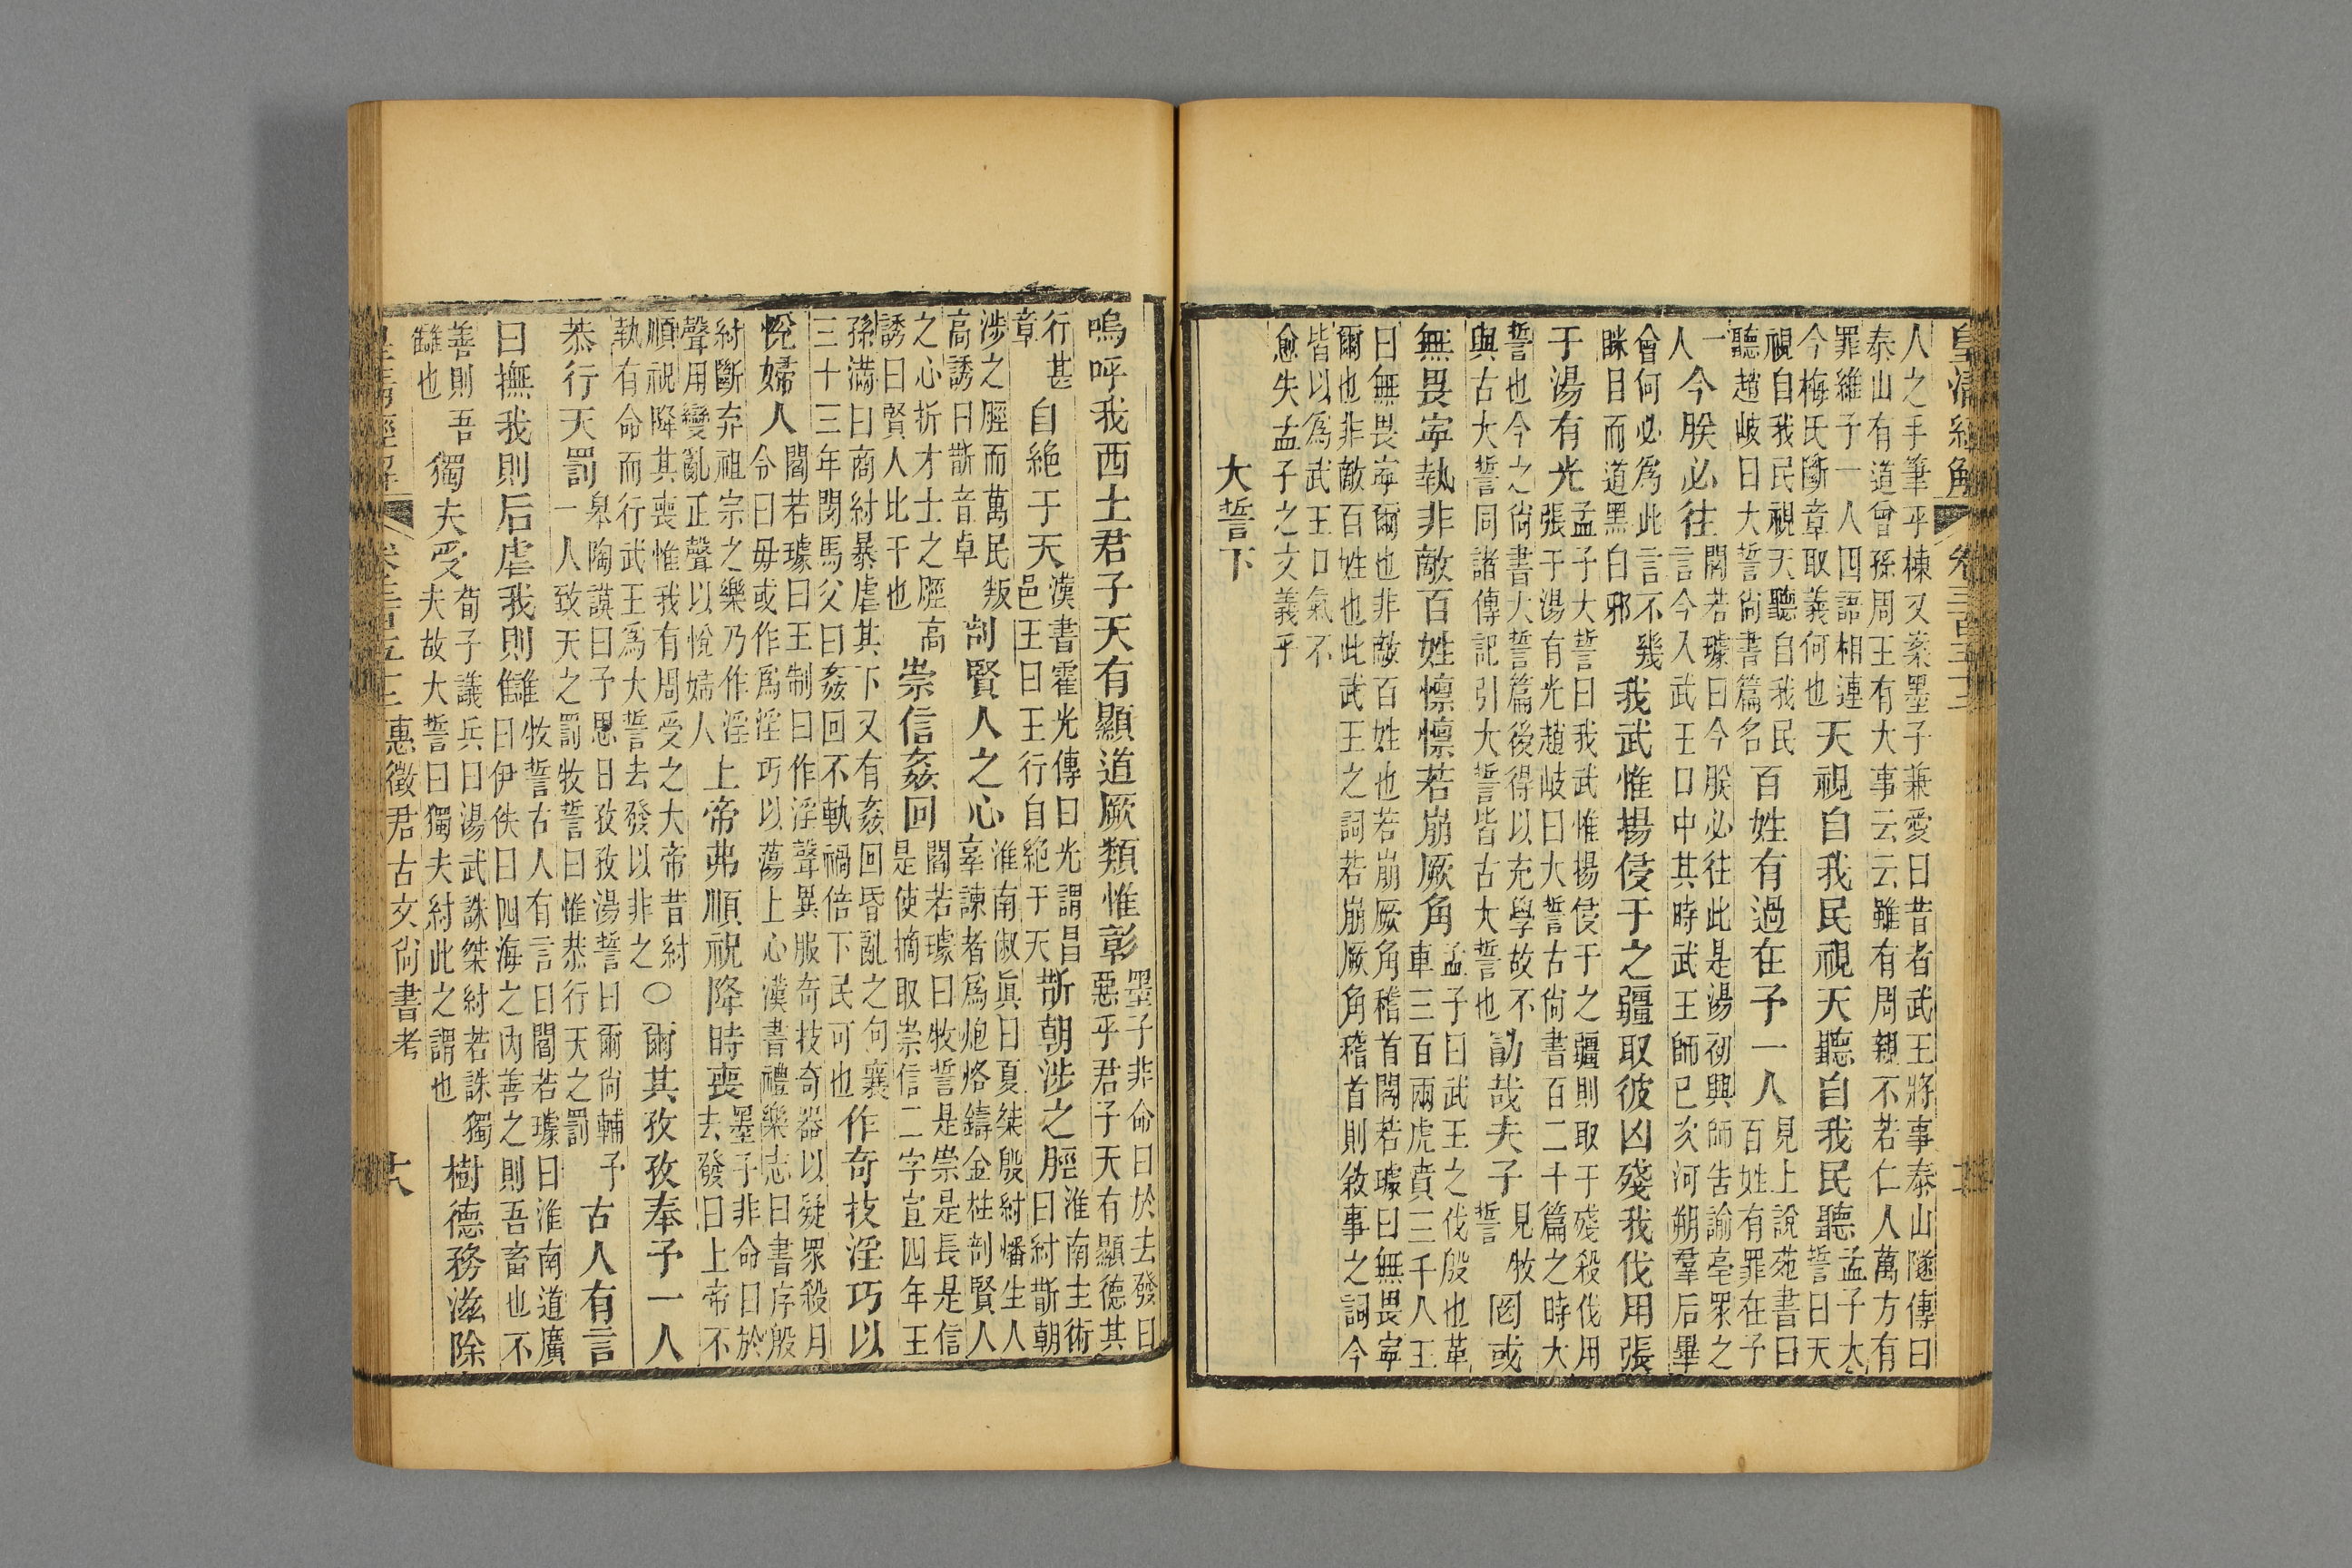 皇清經解 卷三百五十二
人之手筆乎棟又案墨子兼愛曰昔者武王將事泰山隧傳曰
泰山有道曾孫周王有大事云云雖有周親不若仁人萬方有
罪維予一人四語相連今梅氏斷章取義何也天視自我民視天聽自我民聽孟子太誓曰天
視自我民視天聽自我民聽趙岐曰大誓尚書篇名百姓有過在予一人見上說苑書曰百姓有罪在予
一人今朕必往閻若璩曰今朕必往此是湯初興師告諭亳眾之言今入武王口中其時武王師已次河朔羣后畢
會何必爲此言不幾眯目而道黑白邪我武惟揚侵于之疆取彼凶殘我伐用張
于湯有光孟子大誓曰我武惟揚侵于之疆則取于殘殺伐用張于湯有光趙岐曰大誓古尚書百二十篇之時大
誓也今之尚書大誓篇後得以充學故不與古大誓同諸傳記引大誓皆古大誓也勖哉夫子見牧誓罔或
無畏寜執非敵百姓懍懍若崩厥角孟子曰武王之伐殷也革車三百兩虎賁三千人王
曰無畏寜爾也非敵百姓也若崩厥角稽首閻若璩曰無畏寜
爾也非敵百姓也此武王之詞若崩厥角稽首則敘事之詞今
皆以爲武王口氣不
愈失孟子之文義乎
大誓下
嗚呼我西土君子天有顯道厥類惟彰墨子非命曰於去發曰惡乎君子天有顯德其
行甚章自絕于天漢書霍光傳曰光謂昌邑王曰王行自絕于天斮朝涉之脛淮南主術曰紂斮朝
涉之脛而萬民叛高誘曰斮音卓剖賢人之心淮南俶眞曰夏桀殷紂燔生人辜諫者爲炮烙鑄金柱剖賢人
之心折才士之脛高誘曰賢人比干也崇信姦回閻若璩曰牧誓是崇是長是信是使摘取崇信二字宣四年王
孫滿曰商紂暴虐其下又有姦回昏亂之句襄三十三年閔馬父曰姦回不軌禍倍下民可也作奇技淫巧以
悅婦人閻若璩曰王制曰作淫聲異服奇技奇器以疑眾殺月令曰毋或作爲淫巧以蕩上心漢書禮樂志曰書序殷
紂斷弃祖宗之樂乃作淫聲用變亂正聲以悅婦人上帝弗順祝降時喪墨子非命曰於去發曰上帝不
順祝降其喪惟我有周受之大帝昔紂執有命而行武王爲大誓去發以非之○爾其孜孜奉予一人
恭行天罰皋陶謨曰予思日孜孜湯誓曰爾尚輔予一人致天之罰牧誓曰惟恭行天之罰古人有言
曰撫我則后虐我則讎牧誓古人有言曰閻若璩曰淮南道廣曰伊佚曰四海之內善之則吾畜也不
善則吾讎也獨夫受荀子議兵曰湯武誅桀紂若誅獨夫故大誓曰獨夫紂此之謂也樹德務滋除
皇清經解 卷三百五十二 惠徵君古文尚書考 十八